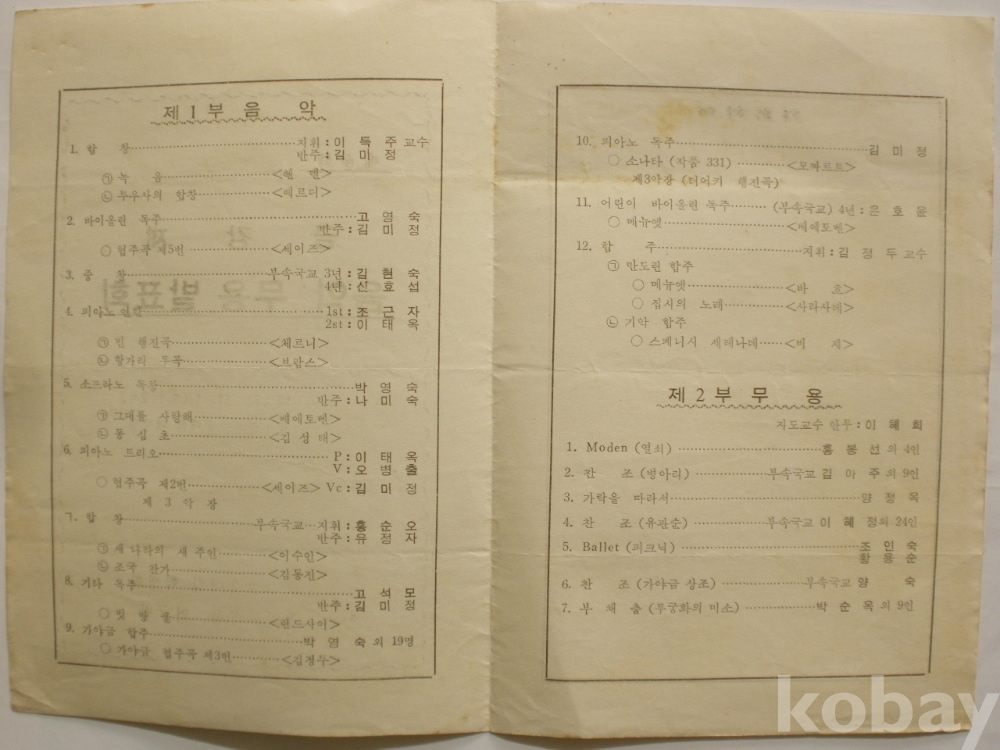 제 1 부 음 악
1. 합 창 지휘 : 이 득 주 교수
반주 : 김 미 정
㉠ 녹 음 <헨 델>
㉡ 투우사의 합창 <베르디>
2. 바이올린 독주 고 영 숙
반주 : 김 미 정
○ 협주곡 제5번 <세이즈>
3. 중 창 부속국교 3년 : 김 현 숙
4년 : 신 효 섭
4. 피아노 연탄 1st : 조 근 자
2st : 이 태 옥
㉠ 빈 행진곡 <체르니>
㉡ 항가리 무곡 <브람스>
5. 소프라노 독창 박 명 숙
반주 : 나 미 숙
㉠ 그대를 사랑해 <베에토벤>
㉡ 동 심 초 <김 성 태>
6. 피아노 트리오 P : 이 태 옥
V : 오 병 출
○ 협주곡 제2번 <세이즈> Vc : 김 미 정
제 3 악 장
7. 합 창 부속국교 지휘 : 홍 순 오
반주 : 유 정 자
㉠ 새 나라의 새 주인 <이수인>
㉡ 조국 찬가 <김동진>
8. 기타 독주 고 석 모
반주 : 김 미 정
○ <랜드사이>
9. 가야금 합주 박 영 숙 외 19명
○ 가야금 협주곡 제3번 <김정두>
10. 피아노 독주 김 미 정
○ 소나타 (작품 331) <모짜르트>
제3악장 (터어키 행진곡)
11. 어린이 바이올린 독주 (부속국교) 4년 : 은 호 윤
○ 메뉴엣 <베에토벤>
12. 합 주 지휘 : 김 정 두 교수
㉠ 만도린 합주
○ 메뉴엣 <바 흐>
○ 집시의 노래 <사라사테>
㉡ 기악 합주
○ 스페니시 세레나데 <비 제>
제 2 부 무 용
지도교수 안무 : 이 혜 희
1. Moden (열쇠) 홍 봉 선 외 4인
2. 찬 조 (병아리) 부속국교 김 아 주 외 9인
3. 가락을 따라서 양 정 옥
4. 찬 조 (유관순) 부속국교 이 혜 정 외 24인
5. Ballet (피크닉) 조 인 숙
황 용 순
6. 찬 조 (가야금 산조) 부속국교 양 숙
7. 부 채 춤 (무궁화의 미소) 박 순 옥 외 9인
kobay